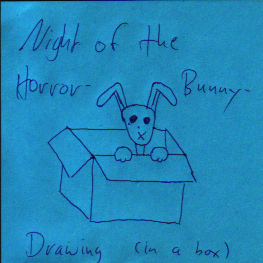 Night of the
Horror- Bunny-
Drawing (in a box)